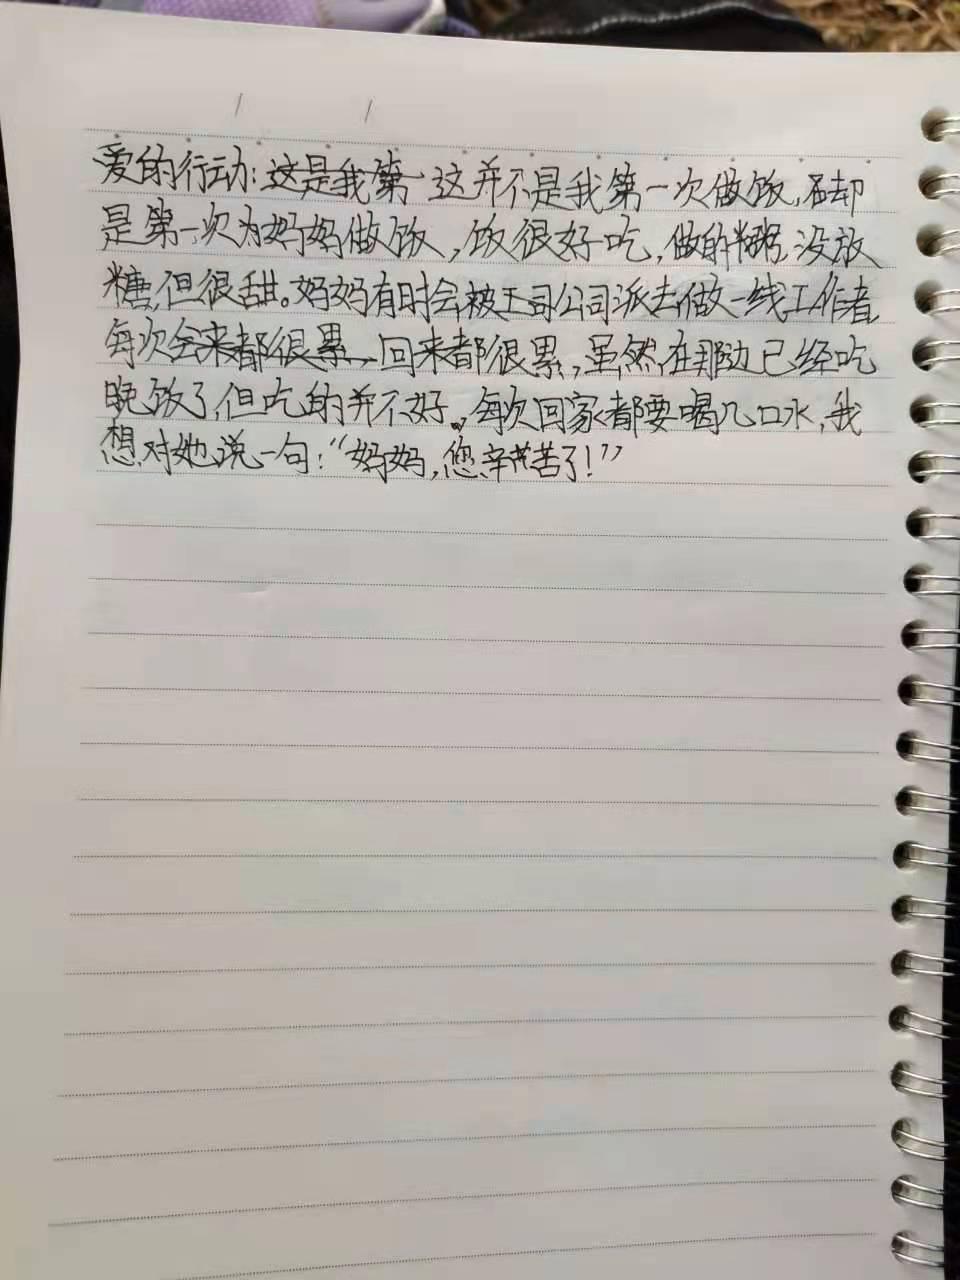 爱的行动:这是我第一这并不是我第一次做饭,却
是第一次为妈妈做饭,饭很好吃,做的粥,没放
糖,但很甜。妈妈有时会被工司公司派去做一线工作者,
每次会来都很累,回来都很累,虽然在那边已经吃
晚饭了,但吃的并不好。每次回家都要喝几口水,我
想对她说一句:“妈妈,您辛苦了!”